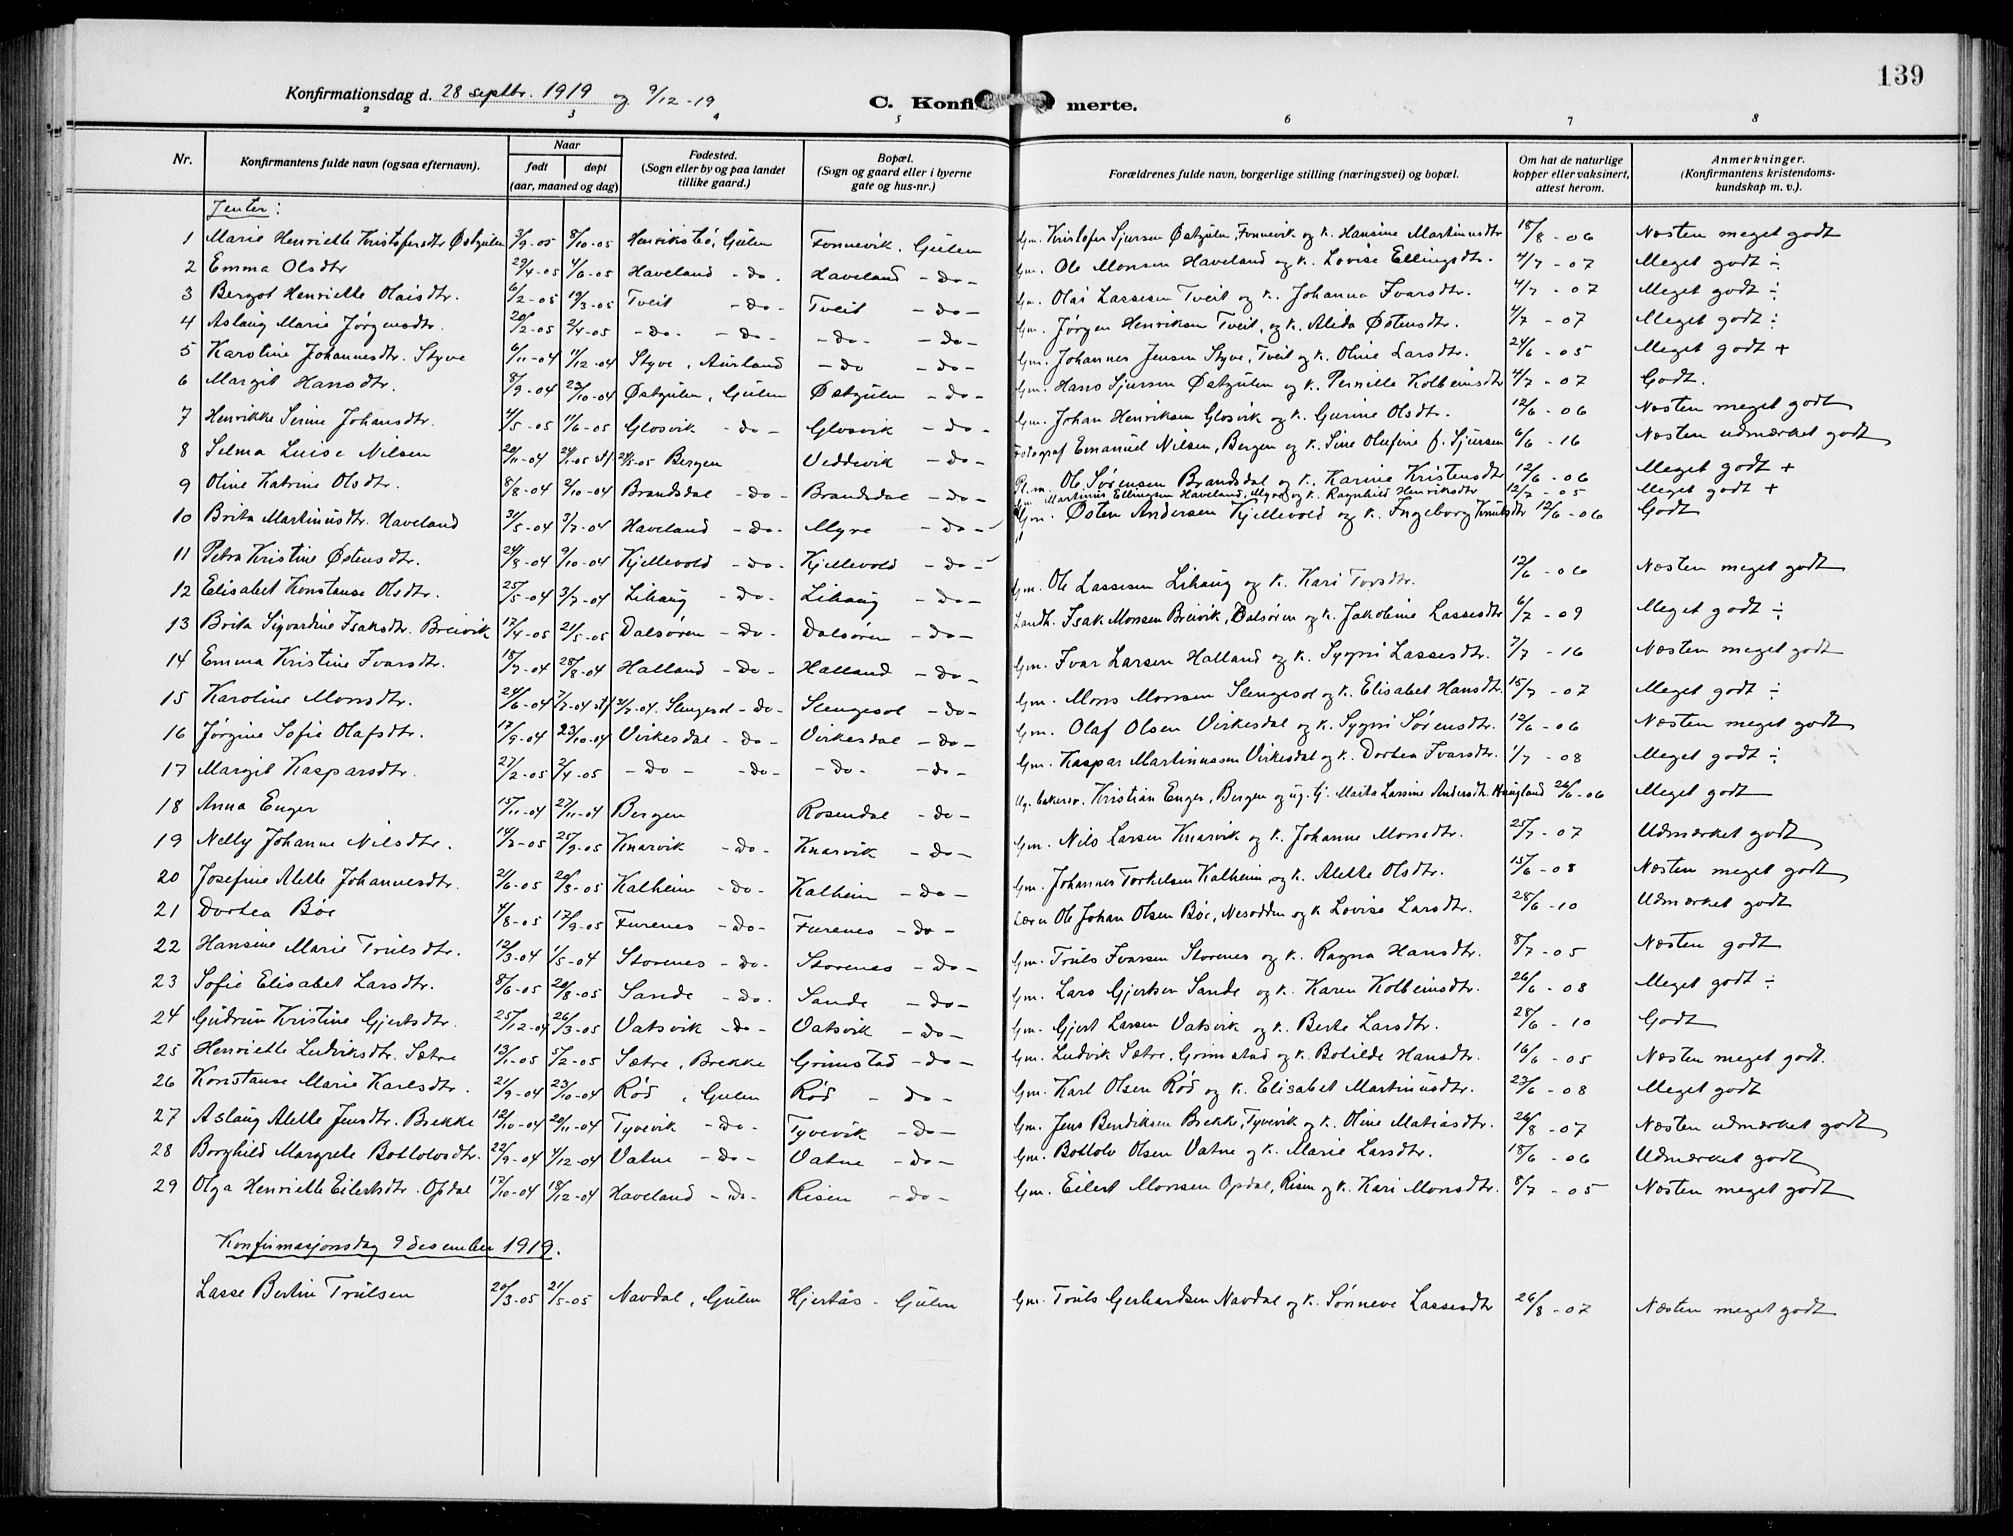 139
Konfirmationsdag d. 28 septbr. 1919 og 9/12-19
C. Konfirmerte.
2 3 4 5 6 7 8
Nr. Konfirmantens fulde navn (ogsaa efternavn). Naar født døpt (aar, maaned og dag) Fødested. (Sogn eller by og paa landet tillike gaard.) Bopæl. (Sogn og gaard eller i byerne gate og hus-nr.) Forældrenes fulde navn, borgerlige stilling (næringsvei) og bopæl. Om hat de naturlige kopper eller vaksinert, attest herom. Anmerkninger. (Konfirmantens kristendomskundskap m. v.).
Jenter:
1 Marie Henriette Kristofersdtr Østgulen 3/9-05 8/10-05 Henriksbø, Gulen Fonnevik, Gulen Gm. Kristofer Sjursen Østgulen, Fonnevik og k. Hansine Martinusdtr 18/8-06 Næsten meget godt
2 Emma Olsdtr 29/4-05 4/6-05 Haveland -do- Haveland -do- Gm. Ole Monsen Haveland og k. Lovise Ellingsdtr. 4/7-07 Meget godt ÷
3 Bergot Henriette Olaisdtr. 6/2-05 19/3-05 Tveit -do- Tveit -do- Gm. Olai Lassesen Tveit og k. Johanna Ivarsdtr. 4/7-07 Meget godt ÷
4 Aslaug Marie Jørgensdtr. 20/2-05 2/4-05 -do- -do- -do- -do- Gm. Jørgen Henriksen Tveit, og k. Alida Østensdtr. 4/7-07 Meget godt ÷
5 Karstine Johannesdtr. Styve 6/11-04 11/12-04 Styve, Aurland -do -do- Gm. Johannes Jensen Styve, Tveit og k. Oline Larsdtr. 24/6-05 Meget godt +
6 Margit Hansdtr. 8/9-04 23/10-04 Østgulen, Gulen Østgulen -do- Gm. Hans Sjursen Østgulen og k. Pernille Kolbeinsdtr 4/7-07 Godt.
7 Henrikke Serine Johansdtr. 4/5-05 11/6-05 Glosvik -do- Glosvik -do- Gm. Johan Henriksen Glosvik og k. Gurine Olsdtr. 12/6-06 Næsten meget godt
8 Selma Luise Nilsen 20/11-04 Bergen Veddevik -do- Fotograf Emanuel Nilsen, Bergen og k. Sine Olufine f. Sjursen 6/6-16 Næsten udmerket godt
9 Oline Katrine Olsdtr. 8/8-04 2/10-04 Brandsdal -do- Brandsdal -do- Pl.m. Ole Sørensen Brandsdal og k. Karine Kristensdtr 12/6-06 Meget godt +
Martinus Ellingsen Haveland, Myre og k. Ragnhild Henriksdtr 12/7-05 Meget godt +
10 Brita Martinusdtr. Haveland 31/5-04 3/7-04 Haveland -do- Myre -do- Gm. Østen Andersen Kjellevold og k. Ingeborg Knutsdtr 12/6-06 Godt
11 Petra Kristine Østensdtr. 24/8-04 9/10-04 Kjellevold -do- Kjellevold -do-
12 Elisabet Konstanse Olsdtr. 25/5-04 3/7-04 Lihaug -do- Lihaug -do- Gm. Ole Lassesen Lihaug og k. Kari Torsdtr. 12/6-06 Næsten meget godt
13 Brita Sigvardine Isaksdtr. Breivik 17/4-05 21/5-05 Dalsøren -do- Dalsøren -do- Landh. Isak Monsen Breivik, Dalsøren og k. Jakobine Lassesdtr 6/7-09 Meget godt ÷
14 Emma Kristine Ivarsdtr. 18/7-04 28/8-04 Halland -do- Halland -do- Gm. Ivar Larsen Halland og k. Sygni Lassesdtr. 7/7-16 Næsten meget godt
15 Karoline Monsdtr. 24/6-04 Slengesol -do- Slengesol -do- Gm. Mons Monsen Slengesol og k. Elisabet Hansdtr. 15/7-07 Meget godt ÷
16 Jørgine Sofie Olafsdtr. 17/9-04 23/10-04 Virkesdal -do- Virkesdal -do- Gm. Olaf Olsen Virkesdal og k. Sygni Sørensdtr. 12/6-06 Næsten meget godt
17 Margit Kasparsdtr. 27/2-05 2/4-05 -do- -do- -do- -do- Gm. Kaspar Martinussen Virkesdal og k. Dortea Ivarsdtr. 1/7-08 Meget godt ÷
18 Anna Enger 15/11-04 27/11-04 Bergen Rosendal -do- Ug. bakersv. Kristian Enger, Bergen og ug. G. Marta Larsine Andersdtr. Haugland 26/6-06 Meget godt
19 Nelly Johanne Nilsdtr. 14/7-05 25/9-05 Knarvik -do- Knarvik -do- Gm. Nils Larsen Knarvik og k. Johanne Monsdtr. 25/7-07 Udmerket godt
20 Josefine Alette Johannesdtr. 2/6-05 20/8-05 Kalheim -do- Kalheim -do- Gm. Johannes Torkelsen Kalheim og k. Alette Olsdtr. 15/6-08 Næsten meget godt
21 Dortea Bøe 4/8-05 17/9-05 Furenes -do- Furenes -do- Lærer Ole Johan Olsen Bøe, Nesodden og k. Lovise Larsdtr. 28/6-10 Udmerket godt
22 Hansine Marie Trulsdtr. 12/3-04 1/5-04 Storenes -do- Storenes -do- Gm. Truls Ivarsen Storenes og k. Ragna Hansdtr. 8/7-05 Næsten godt
23 Sofie Elisabet Larsdtr. 8/6-05 20/8-05 Sande -do- Sande -do- Gm. Lars Gjertsen Sande og k. Karen Kolbeinsdtr. 26/6-08 Meget godt ÷
24 Gudrun Kristine Gjertsdtr. 25/12-04 26/3-05 Vatsvik -do- Vatsvik -do- Gm. Gjert Larsen Vatsvik og k. Berte Larsdtr. 28/6-10 Godt
25 Henriette Ludviksdtr. Sætre 13/1-05 5/2-05 Sætre, Brekke Grimstad -do- Gm. Ludvik Sætre, Grimstad og k. Botilde Hansdtr. 16/6-05 Næsten meget godt.
26 Konstanse Marie Karlsdtr. 2/9-04 23/10-04 Rød, Gulen Rød -do- Gm. Karl Olsen Rød og k. Elisabet Martinusdtr. 23/6-08 Meget godt
27 Aslaug Alette Jensdtr. Brekke 12/10-04 20/11-04 Tyvevik -do- Tyvevik -do- Gm. Jens Bendiksen Brekke, Tyvevik og k. Oline Matiasdtr. 26/8-07 Næsten udmerket godt
28 Borghild Margrete Bottolvsdtr. 22/9-04 4/12-04 Vatne -do- Vatne -do- Gm. Bottolv Olsen Vatne og k. Marie Larsdtr. 18/6-06 Udmerket godt
29 Olga Henriette Eilertsdtr. Opdal 17/10-04 18/12-04 Haveland -do- Risen -do- Gm. Eilert Monsen Opdal, Risen og k. Kari Monsdtr. 8/7-05 Næsten meget godt
Konfirmasjonsdag 9 desember 1919.
Lasse Bertin Trulsen 20/3-05 21/5-05 Navdal, Gulen Hjertås - Gulen Gm. Truls Gerhardsen Navdal og k. Sønneve Lassesdtr 26/8-07 Næsten meget godt